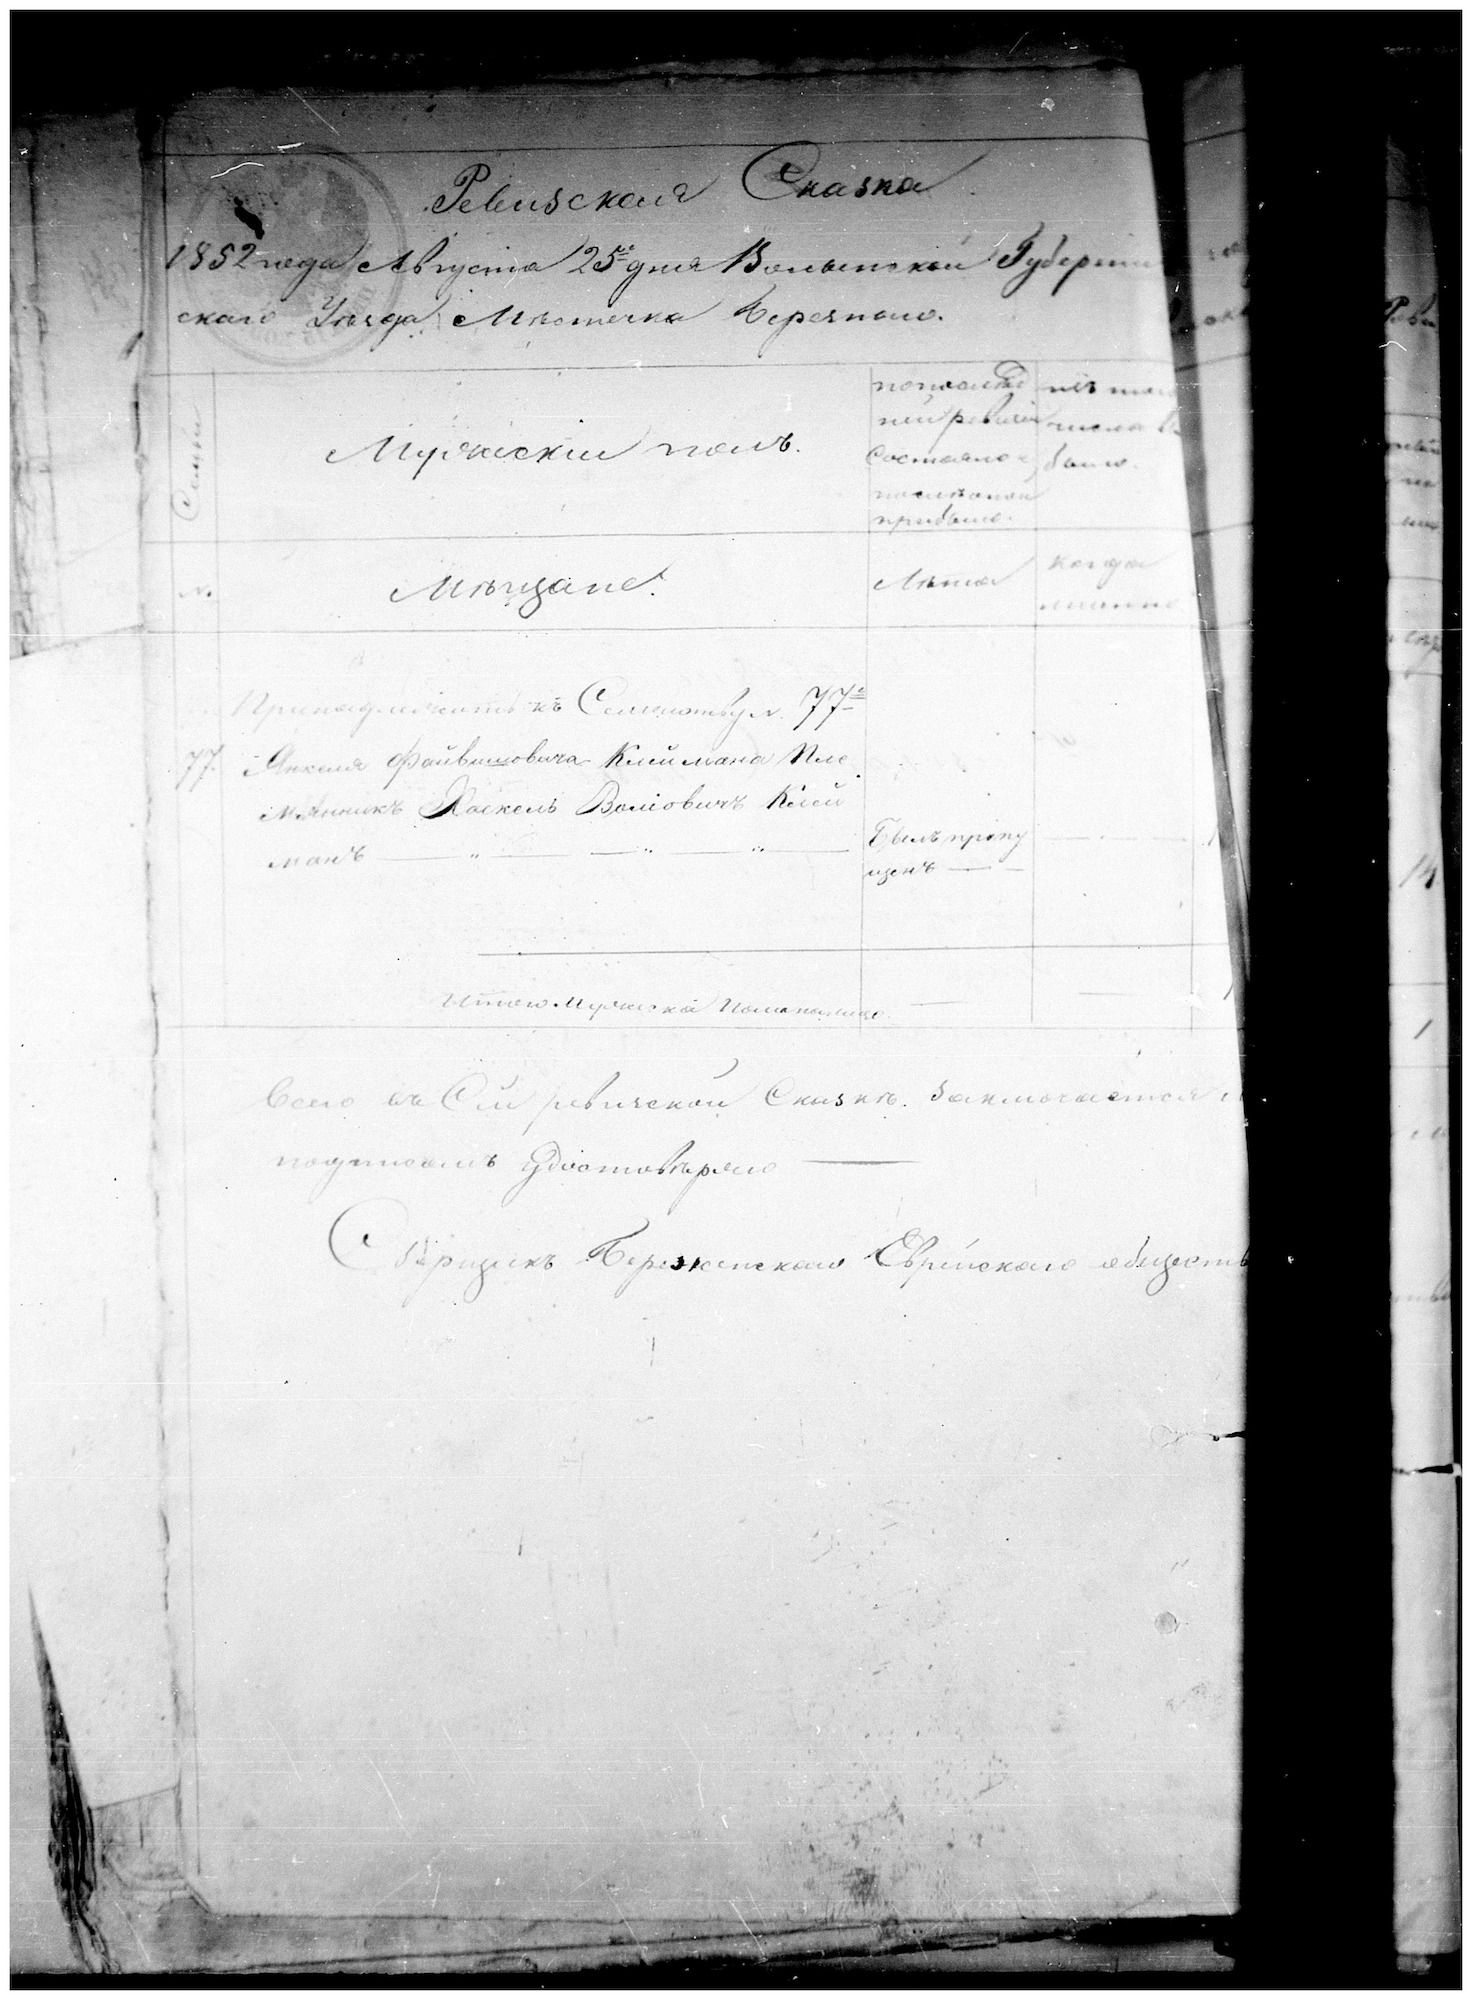 Ревизская Сказка
1852 года Августа 25го дня Волынской Губернии
скаго Уѣзда Мѣстечка Березного.
Семьи
Мужескій полъ.
по послѣд
ней ревизіи
Состояло и
послѣ оной
прибыло.
изъ того
числа вы
было.
№.
Мѣщане.
Лѣта
когда
имянно
Принадлежитъ къ Семейству № 77й
77. Янкеля Файвишовича Клеймана Пле
мянникъ Хаскель Волковичъ Клей
манъ
Былъ пропу
щенъ
Итого Мужеска Пола на лицо
1
Всего въ Сей ревизской Сказкѣ заключается
подписомъ Удостовѣряю
Сборщикъ Березненского Еврейского обществ
14
1